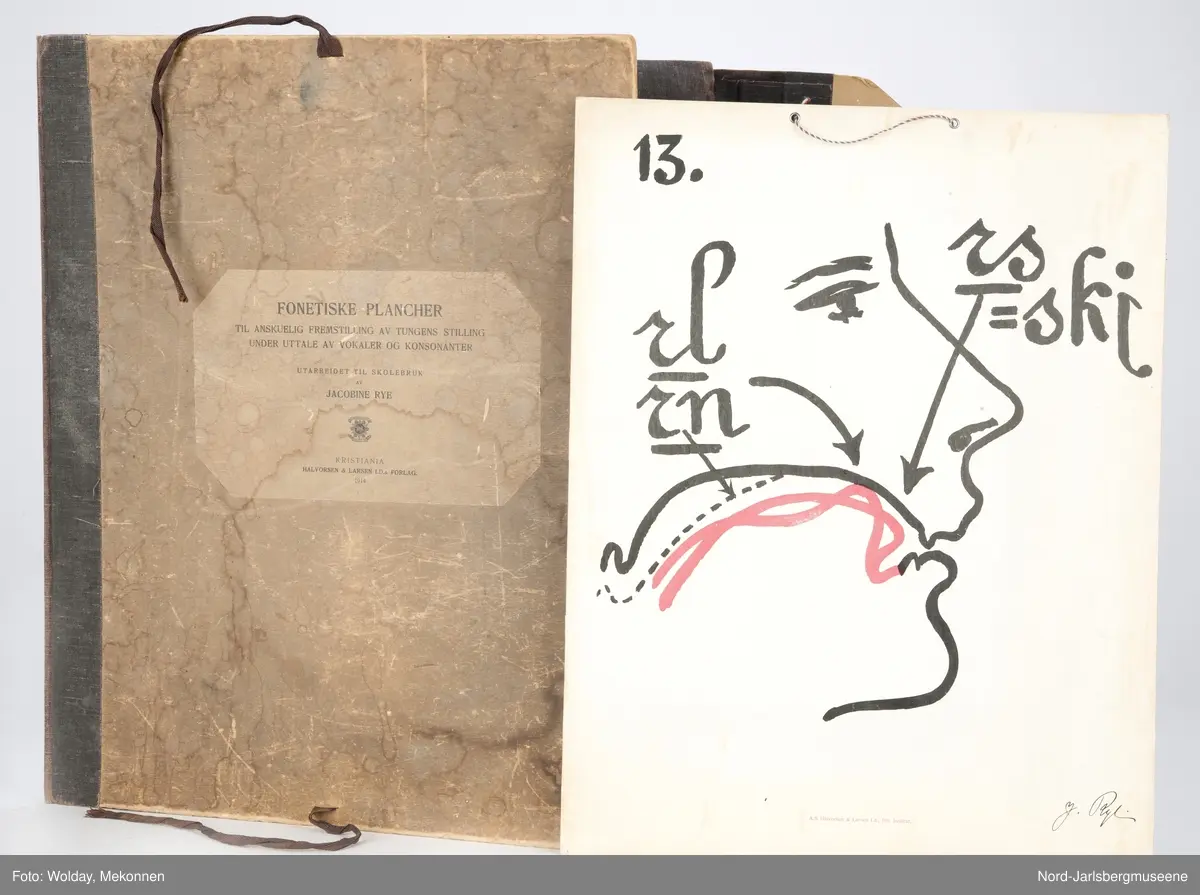 FONETISKE PLANCHER
TIL ANSKUELIG FREMSTILLING AV TUNGENS STILLING
UNDER UTTALE AV VOKALER OG KONSONANTER
UTARBEIDET TIL SKOLEBRUK
AV
JACOBINE RYE
KRISTIANIA
HALVORSEN & LARSEN
FORLAG.
13.
rl
rn
rs
=skj
Foto: Wolday, Mekonnen
Nord-Jarlsbergmuseene